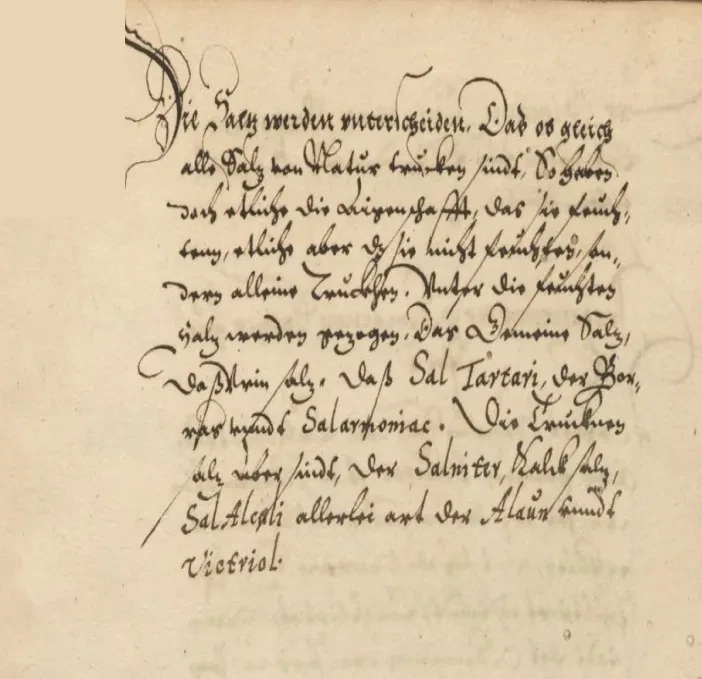 Die Saltz werden vnterscheiden. Das ob gleich
alle Saltz von Natur trucken sindt, So haben
doch etliche die Aigenschafft, das sie feuch-
tenn, etliche aber dz sie nicht feuchten, son-
dern alleine Truckhen. Vnter die feuchten
saltz werden gezogen. Das Gemeine Saltz,
daß Vrin saltz. daß Sal Tartari, der Bor-
ras vnndt Salarmoniac. Die Trucknen
saltz aber sindt, der Salniter, Kalck saltz,
Sal Alcali allerlei art der Alaun vnndt
Victriol.